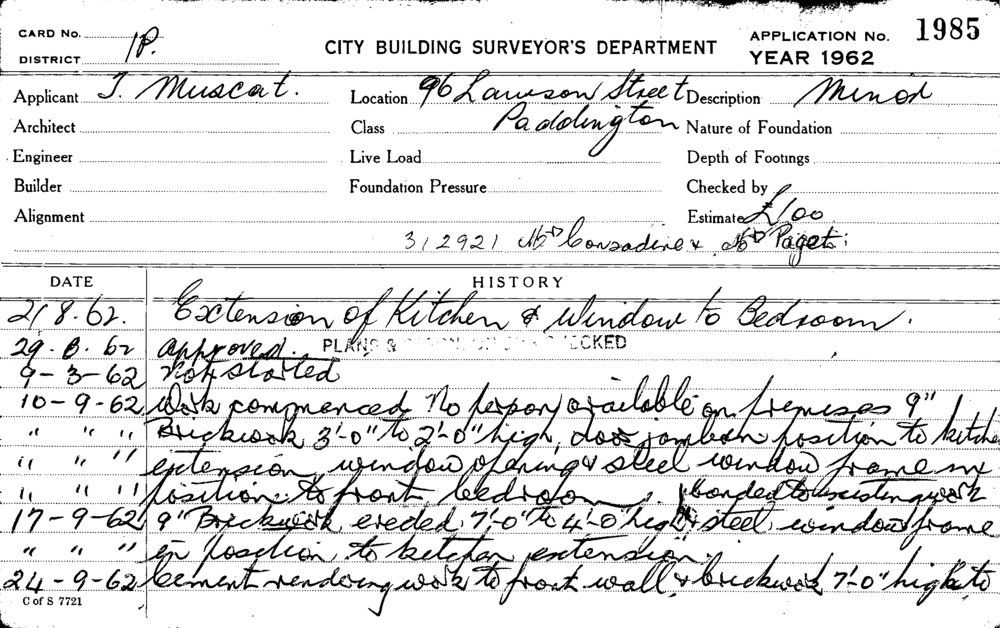 CARD No.
DISTRICT 1P.
CITY BUILDING SURVEYOR'S DEPARTMENT
APPLICATION No. 1985
YEAR 1962
Applicant J. Muscat. Location 96 Lawson Street Description Minor
Architect Class Paddington Nature of Foundation
Engineer Live Load Depth of Footings
Builder Foundation Pressure Checked by
Alignment Estimate £100
312921 Consadine & Paget
DATE HISTORY
21 8.62. Extension of Kitchen & Window to Bedroom.
29.8.62 Approved. PLANS & CHECKED
9-3-62 Not Started
10-9-62 Work commenced No person available on premises 9"
" " " Brickwork 3'-0" to 2'-0" high, door jamb in position to kitchen
" " " extension window opening & steel window frame in
" " " position to front bedroom bonded to existing work
17-9-62 9" Brickwork erected 7'-0" to 4'-0 high & steel window frame
" " " in position to kitchen extension.
24-9-62 Cement rendering work to front wall & brickwork 7'-0" high to
C of S 7721